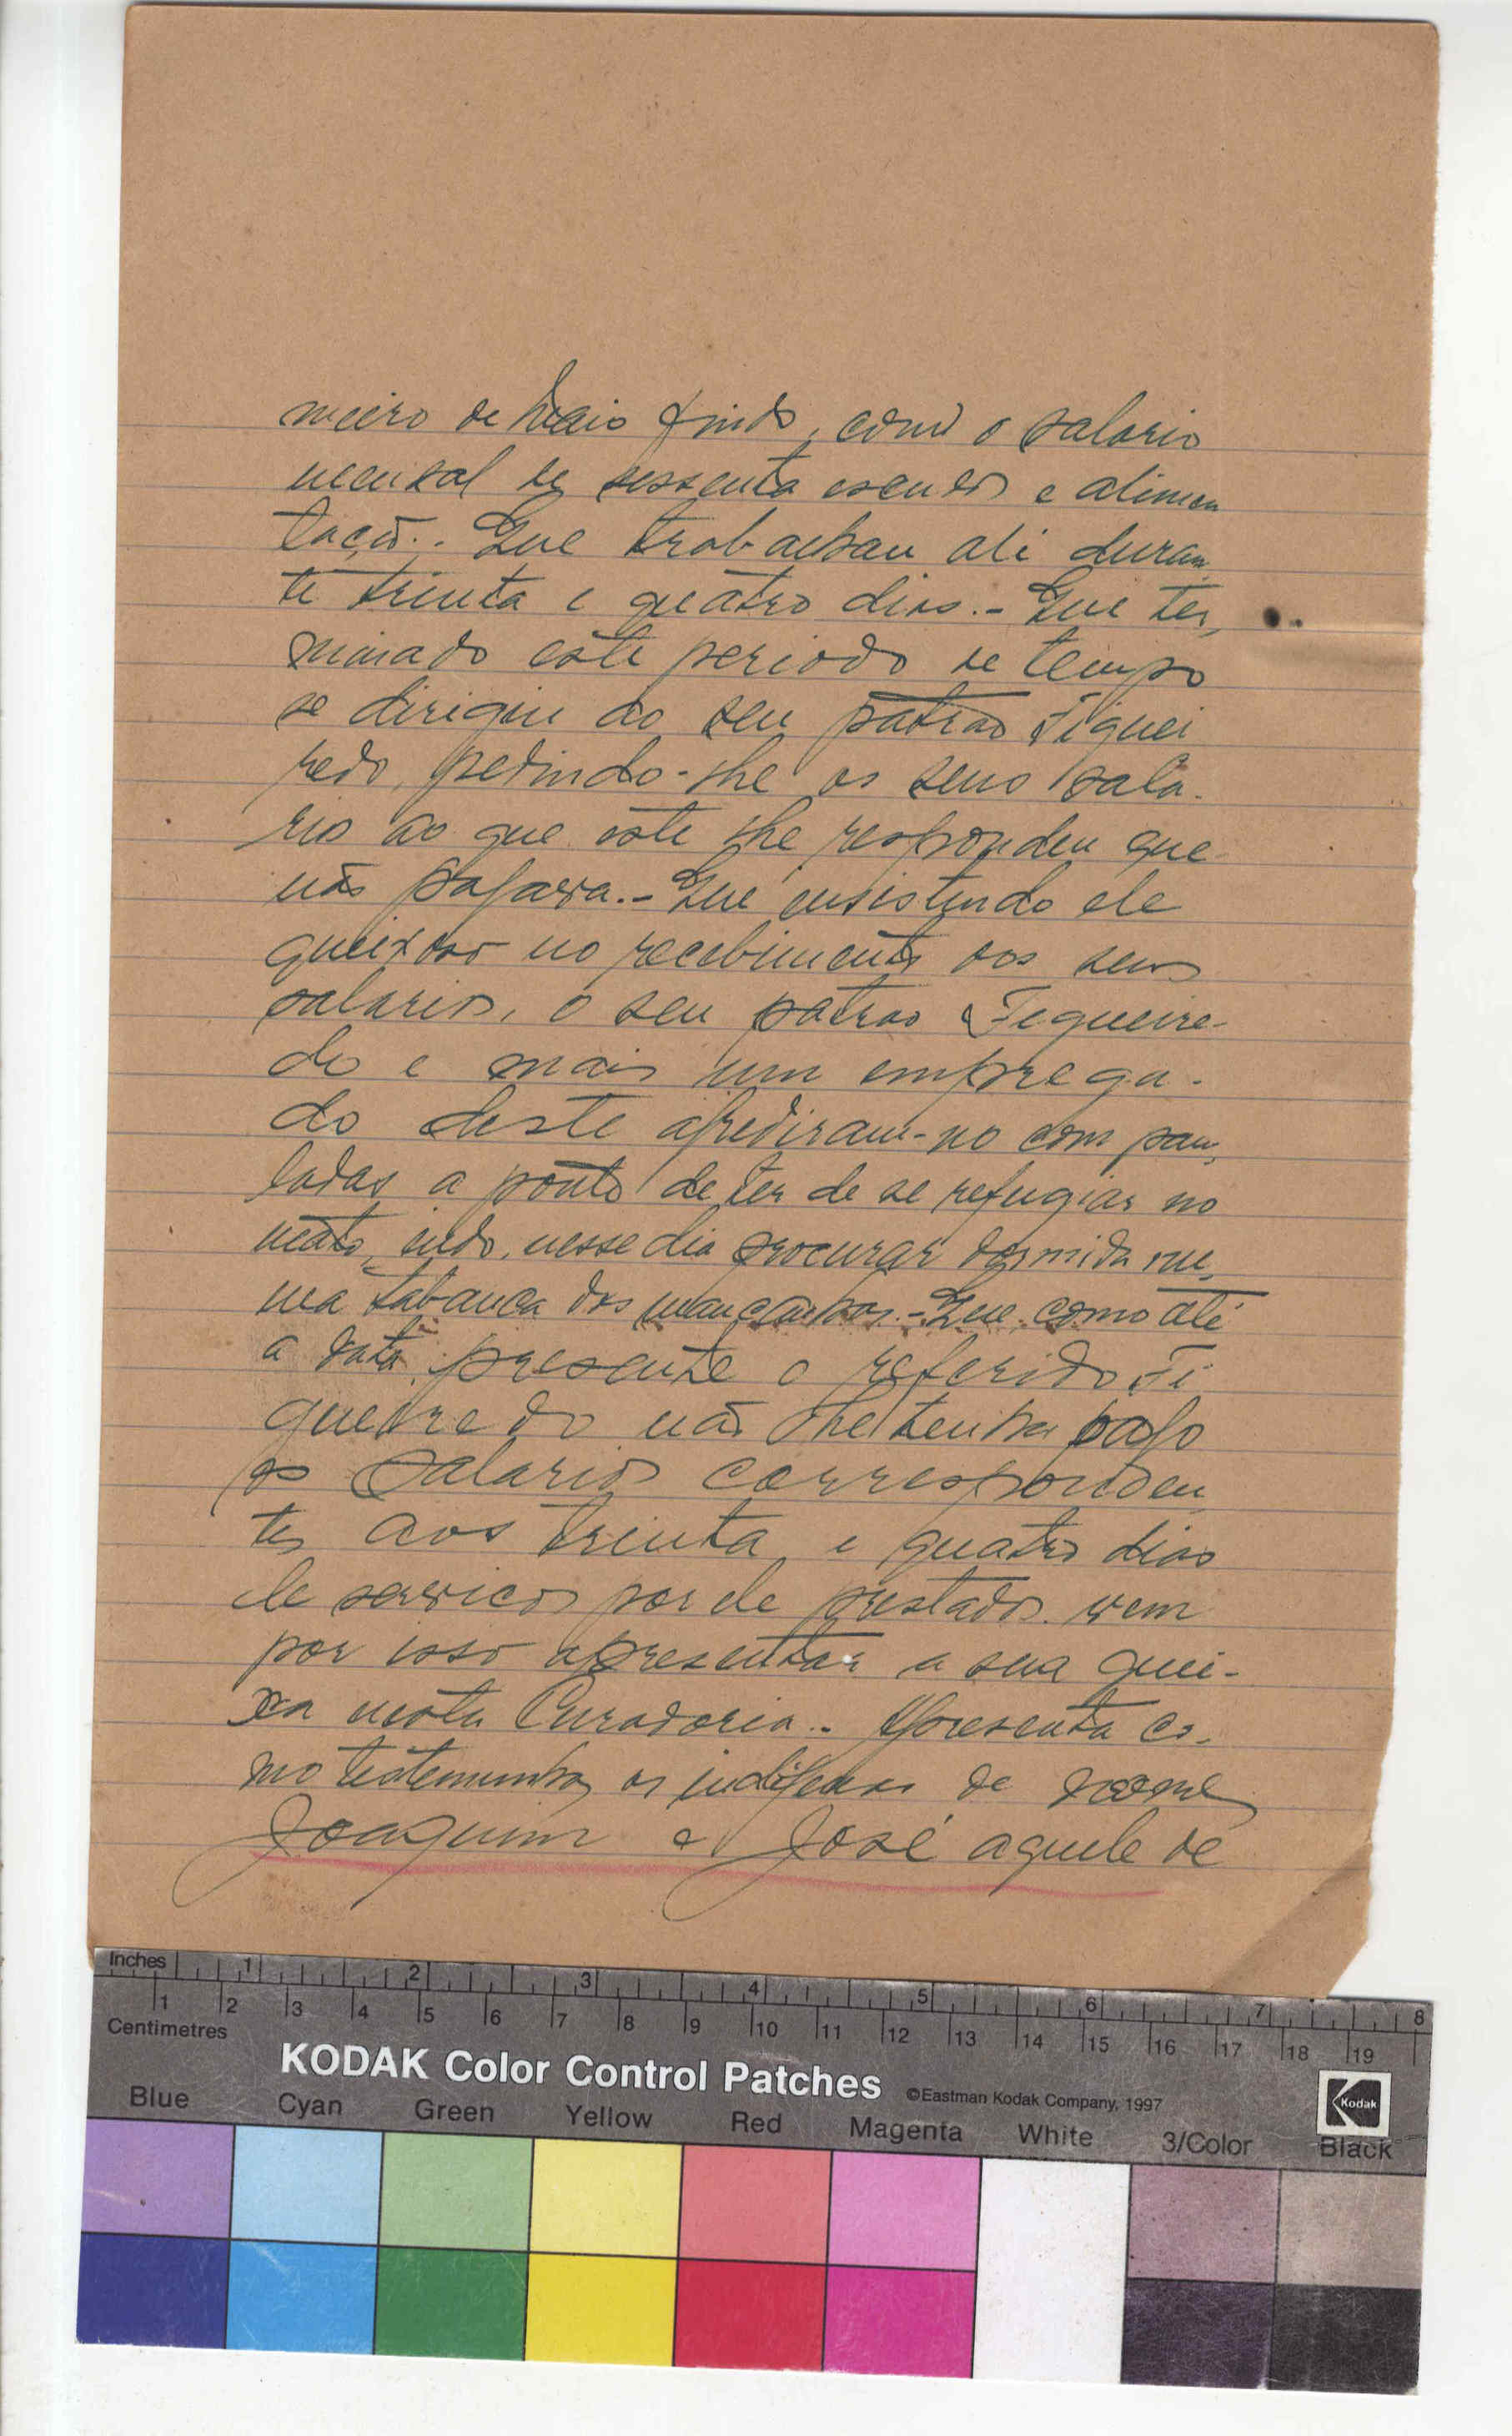 meiro de Maio findo, com o salario
mensal de sessenta escudos e alimen
tação.- Que trabalhou ali duran
te trinta e quatro dias.- Que ter,
minado este periodo de tempo
se dirigiu ao seu patrão Figuei
redo, pedindo-lhe os seus sala-
rio ao que este lhe respondeu que
não pagava.- Que insistindo ele
queixoso no recebimento dos seus
salarios, o seu patrão Figueire-
do e mais um emprega-
do deste agrediram-no com pau,
ladas a ponto de ter de se refugiar no
mato, indo, nesse dia procurar dormida nu,
ma tabanca dos mancanhas.- Que, como até
a data presente o referido Fi
gueiredo não lhe tenha pago
os salarios corresponden
tes aos trinta e quatro dias
de serviços por ele prestados. vem
por isso apresentar a sua quei-
xa nesta Curadoria.- Apresenta co-
mo testemunhas os indígenas de nome
Joaquim e José aquele de
Inches 1 2 3 4 5 6 7 8
1 2 3 4 5 6 7 8 9 10 11 12 13 14 15 16 17 18 19
Centimetres
KODAK Color Control Patches ©Eastman Kodak Company, 1997 Kodak
Blue Cyan Green Yellow Red Magenta White 3/Color Black